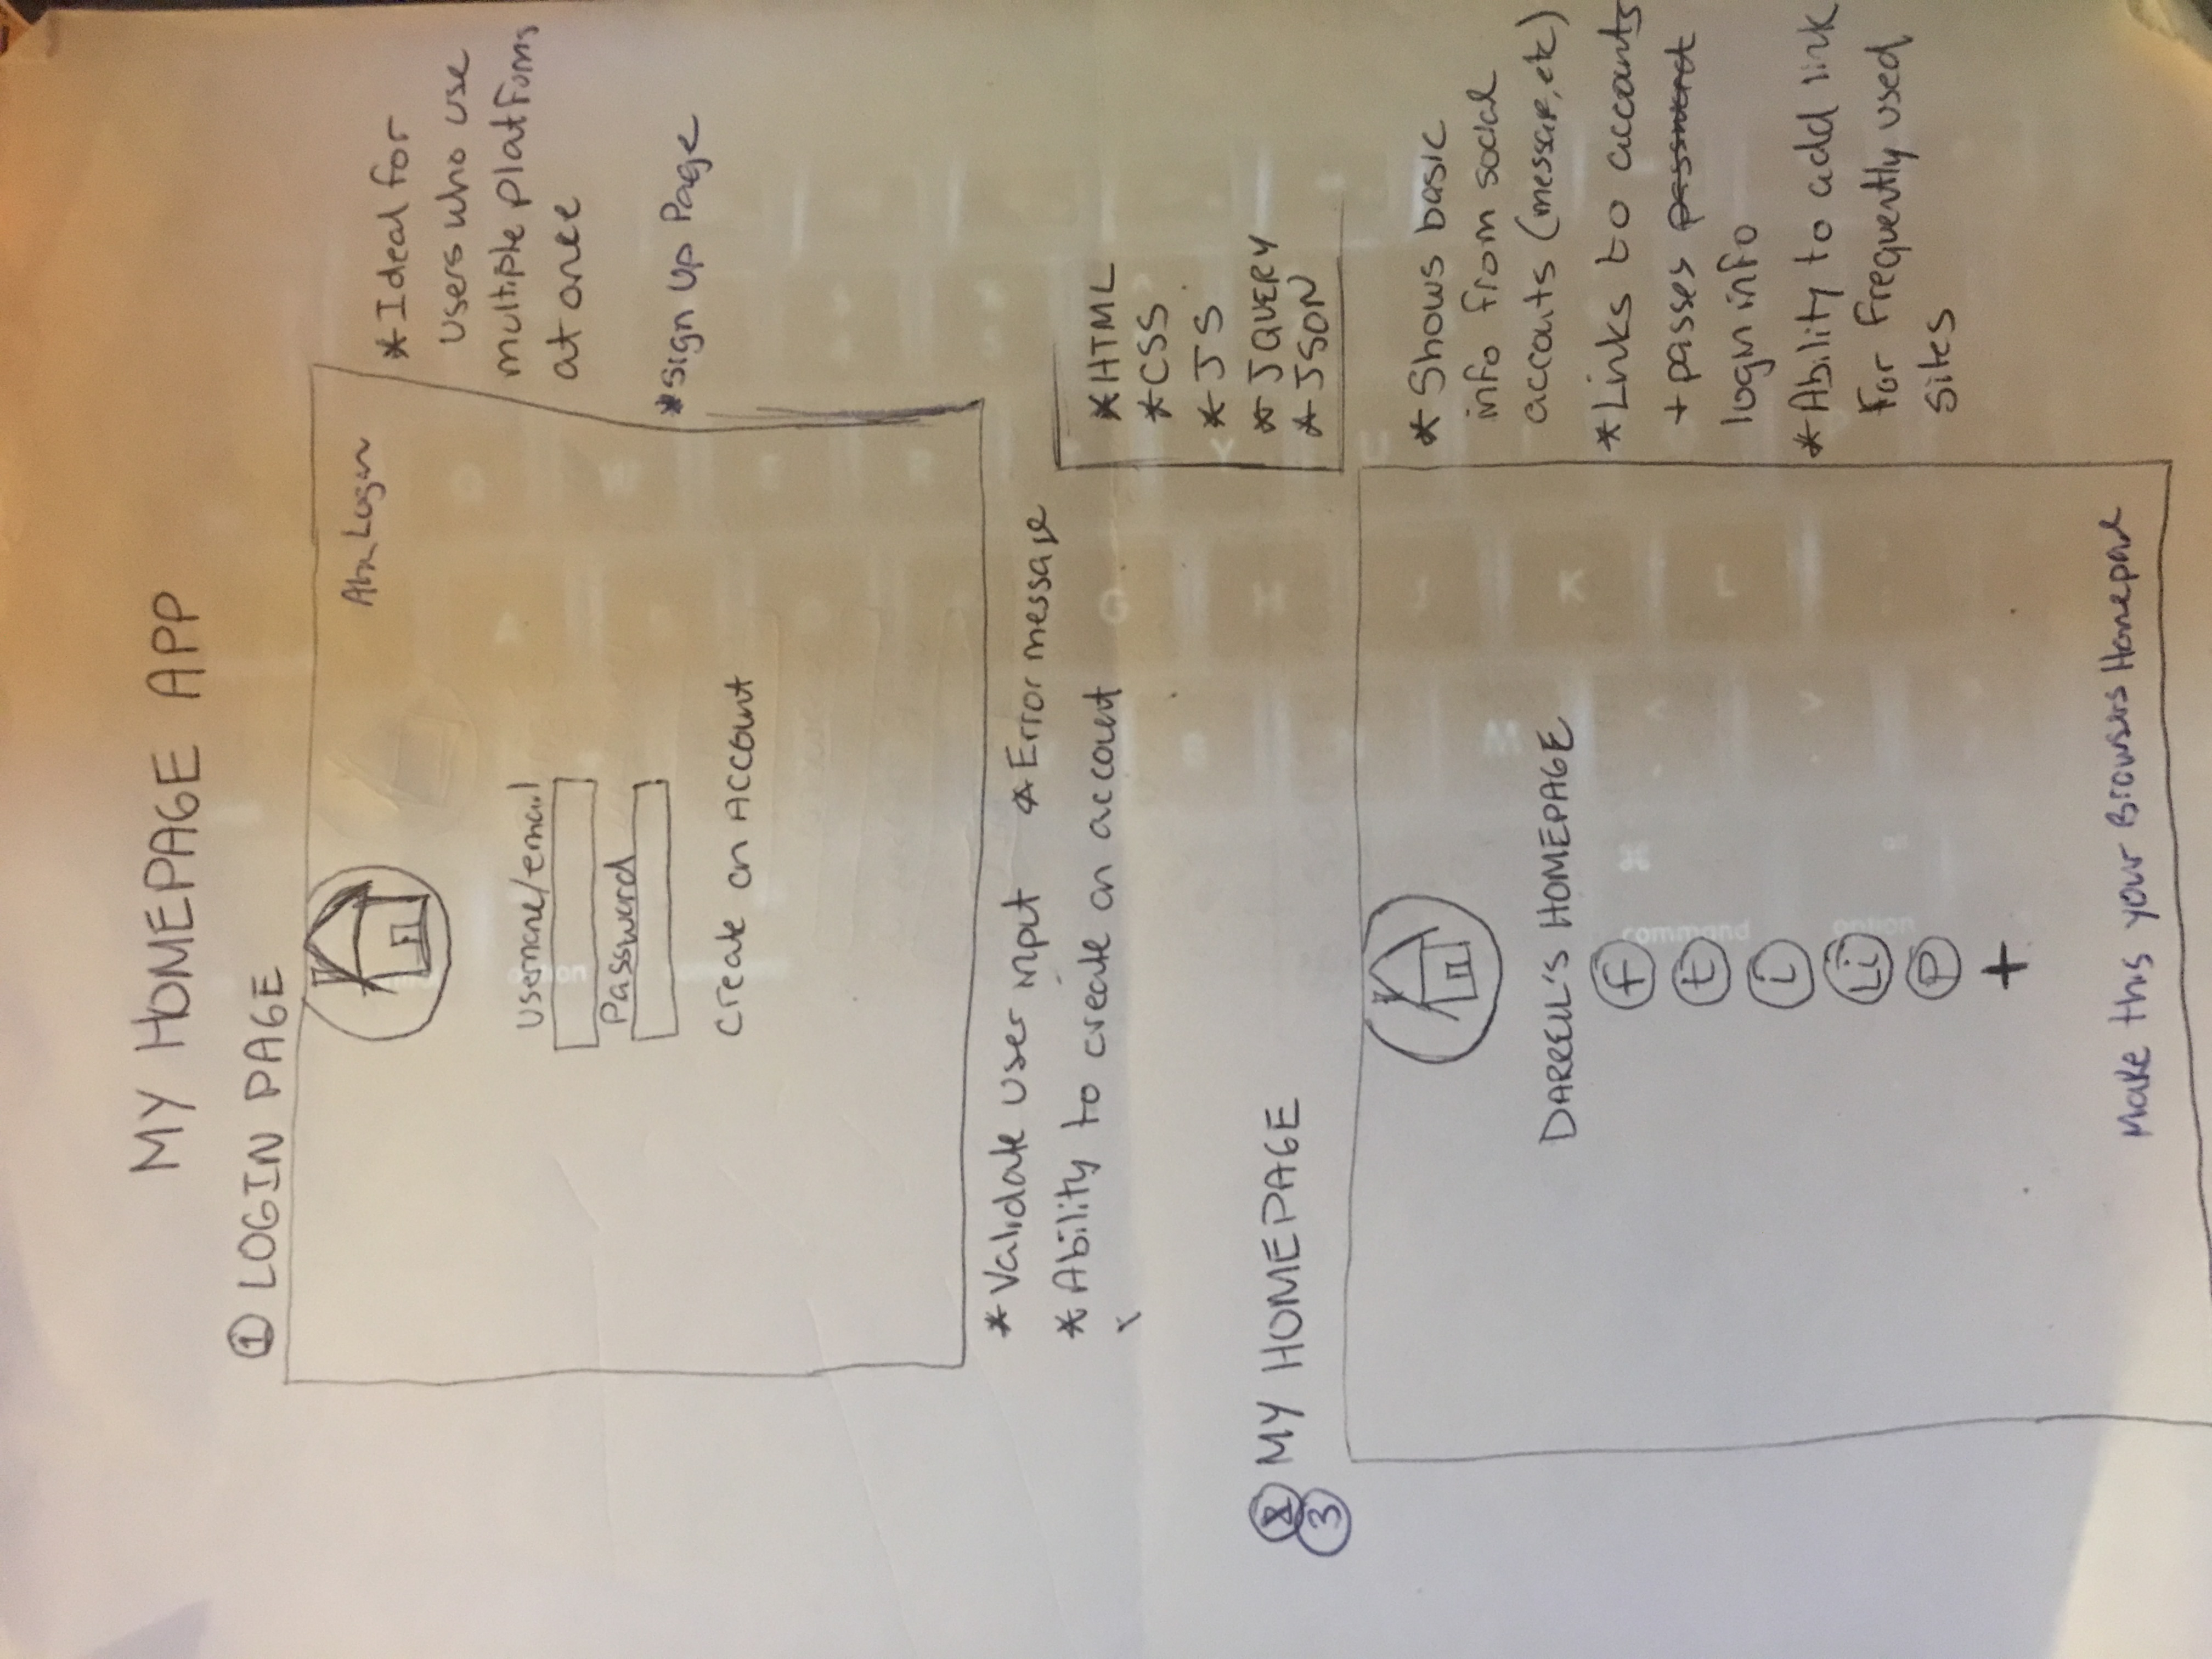 MY HOMEPAGE APP
① LOGIN PAGE
Login
Username/email
Password
Create an Account
* Ideal for
users who use
multiple platforms
at once
* Sign Up Page
* Validate user input * Error message
* Ability to create an account
* HTML
* CSS
* JS
* JQUERY
* JSON
② MY HOMEPAGE
③
DARRELL'S HOMEPAGE
f
t
i
Li
P
+
Make this your Browsers Homepage
* Shows basic
info from social
accouts (message, etc)
* Links to accounts
+ passes password
login info
* Ability to add link
For Frequently used
sites